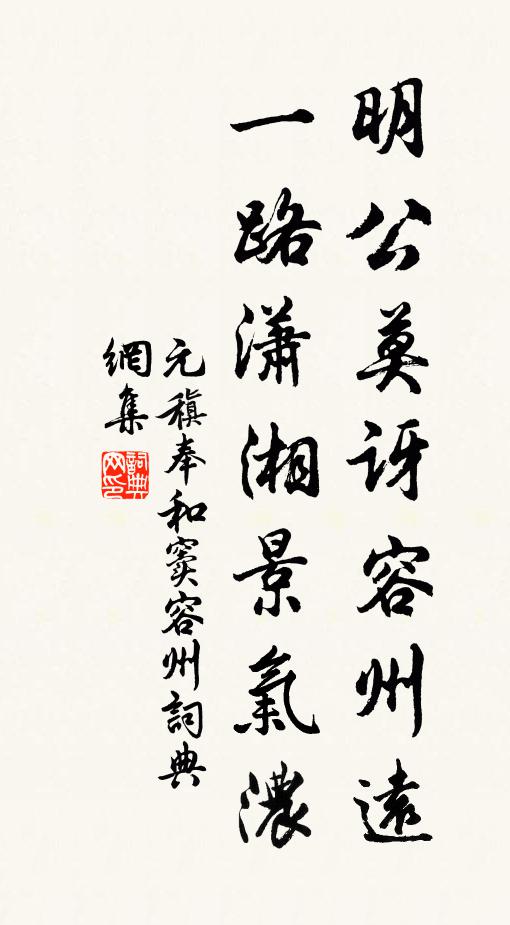 明公莫訝容州遠
一路瀟湘景氣濃
元稹奉和竇容州詞典
網集
詞典
网印